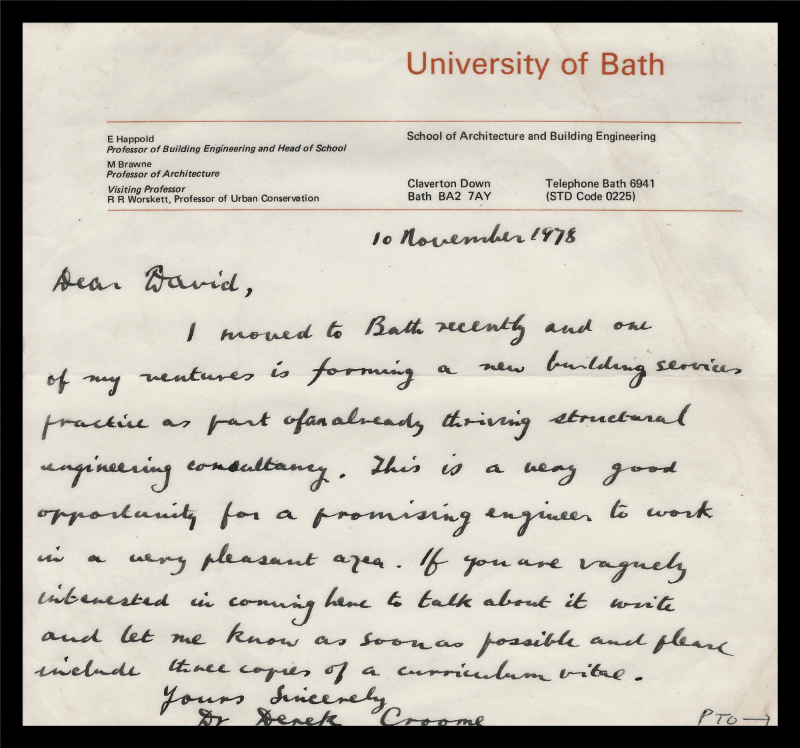 University of Bath
E Happold
Professor of Building Engineering and Head of School
M Brawne
Professor of Architecture
Visiting Professor
R R Worskett, Professor of Urban Conservation
School of Architecture and Building Engineering
Claverton Down
Bath BA2 7AY
Telephone Bath 6941
(STD Code 0225)
10 November 1978
Dear David,
I moved to Bath recently and one
of my ventures is forming a new building services
practice as part of an already thriving structural
engineering consultancy. This is a very good
opportunity for a promising engineer to work
in a very pleasant area. If you are vaguely
interested in coming here to talk about it write
and let me know as soon as possible and please
include three copies of a curriculum vitae.
Yours Sincerely
Dr Derek Croome
PTO →